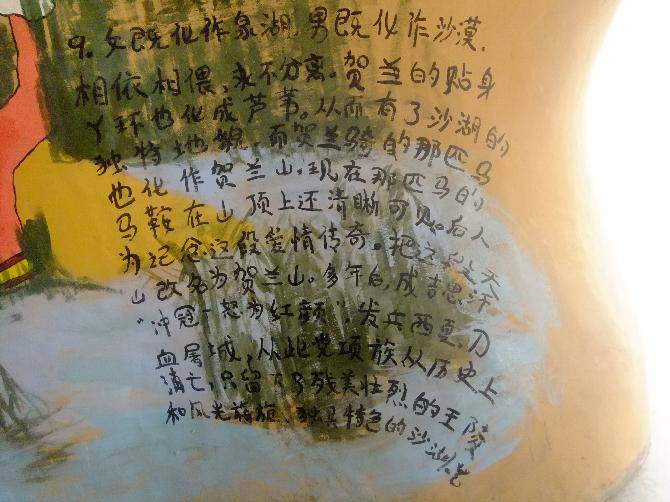 9. 女既化作泉湖,男既化作沙漠,
相依相偎,永不分离。贺兰的贴身
丫环也化成芦苇。从而有了沙湖的
独特地貌。而贺兰骑的那匹马
也化作贺兰山。现在那匹马的
马鞍在山顶上还清晰可见。后人
为纪念这段爱情传奇。把这座天
山改名为贺兰山。多年后,成吉思汗
"冲冠一怒为红颜"发兵西夏,刀
血屠城,从此党项族从历史上
消亡,只留下了残美壮烈的王陵
和风光旖旎、独具特色的沙湖。